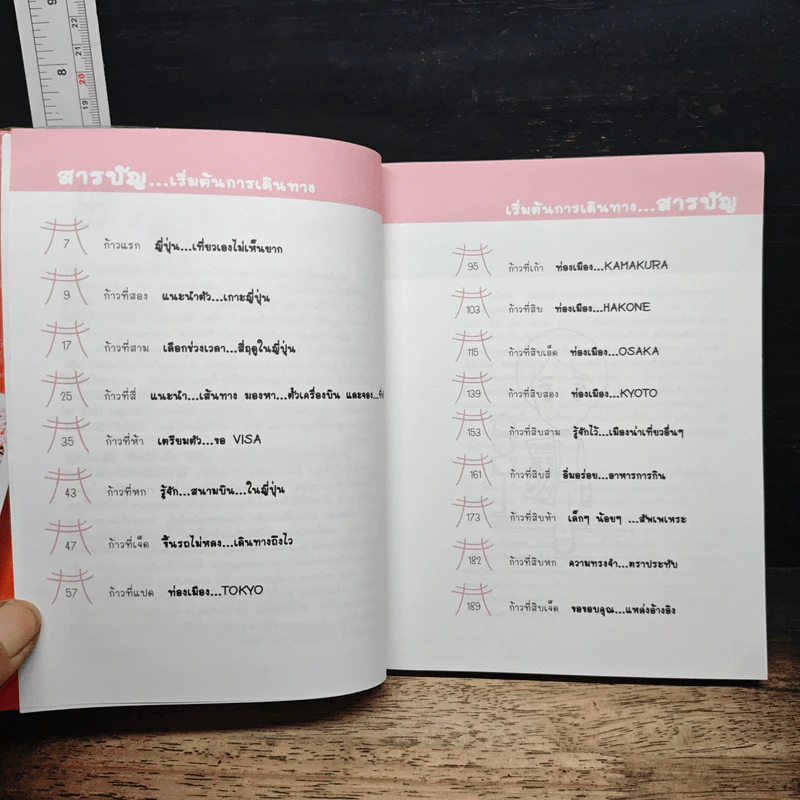 สารบัญ...เริ่มต้นการเดินทาง
7 ก้าวแรก ญี่ปุ่น...เที่ยวเองไม่เห็นยาก
9 ก้าวที่สอง แนะนำตัว...เกาะญี่ปุ่น
17 ก้าวที่สาม เลือกช่วงเวลา...สี่ฤดูในญี่ปุ่น
25 ก้าวที่สี่ แนะนำ...เส้นทาง มองหา...ตั๋วเครื่องบิน และจอง...
35 ก้าวที่ห้า เตรียมตัว...ขอ VISA
43 ก้าวที่หก รู้จัก...สนามบิน...ในญี่ปุ่น
47 ก้าวที่เจ็ด ขึ้นรถไม่หลง...เดินทางถึงไว
57 ก้าวที่แปด ท่องเมือง...TOKYO
เริ่มต้นการเดินทาง...สารบัญ
95 ก้าวที่เก้า ท่องเมือง...KAMAKURA
103 ก้าวที่สิบ ท่องเมือง...HAKONE
115 ก้าวที่สิบเอ็ด ท่องเมือง...OSAKA
139 ก้าวที่สิบสอง ท่องเมือง...KYOTO
153 ก้าวที่สิบสาม รู้จักไว้...เมืองน่าเที่ยวอื่นๆ
161 ก้าวที่สิบสี่ อิ่มอร่อย...อาหารการกิน
173 ก้าวที่สิบห้า เล็กๆ น้อยๆ ...สัพเพเหระ
182 ก้าวที่สิบหก ความทรงจำ...ตราประทับ
189 ก้าวที่สิบเจ็ด ขอขอบคุณ...แหล่งอ้างอิง
9
22
21
8
20
19